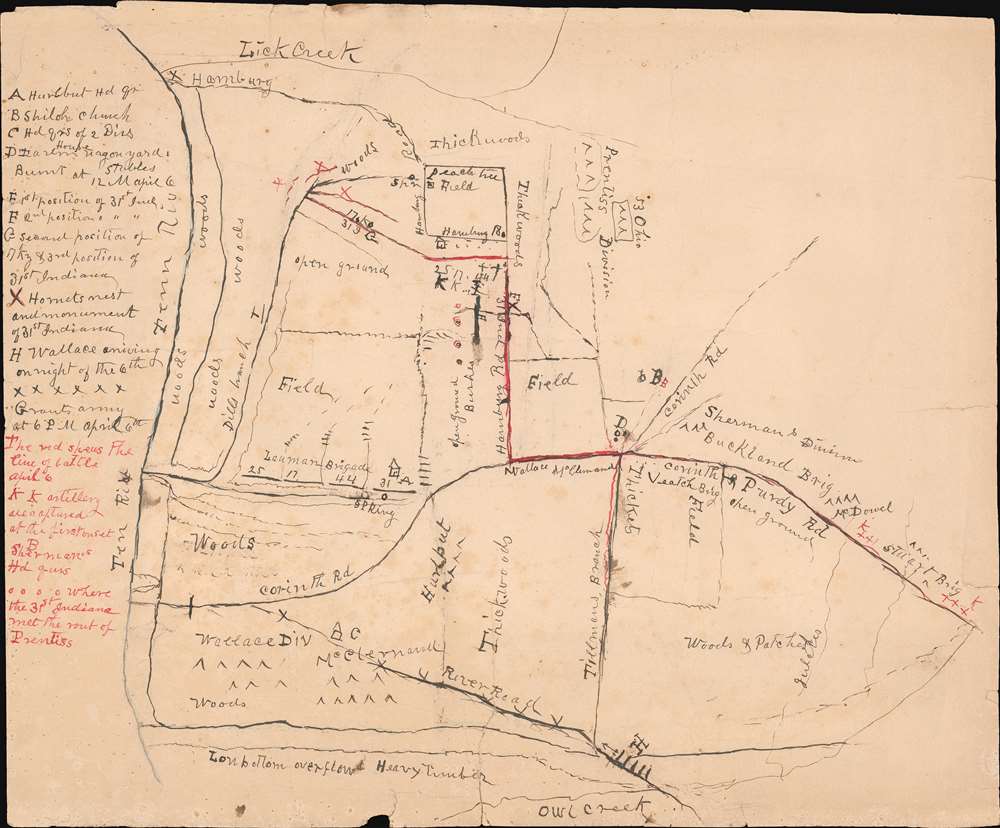 A Hurlbut Hd qr
B Shiloh Church
C Hd qrs of 2 Divs
House
wagon yard
Stables
Burnt at 12 M april 6
E 1st position of 31st Ind,
F 2nd position " " "
G second position of
& 3rd position of
31st Indiana
X Hornets nest
and monument
of 31st Indiana
H Wallace ariving
on right of the 6th
x x x x x x
Grants army
at 6 P M April 6th
The red shows the
line of battle
april 6
K K artillery
captured
at the first onset
B
Shermans
Hd qurs
o o o o where
the 31st Indiana
met the rout of
Prentiss
Lick Creek
X Hamburg
Road
woods
Thick woods
Peach tree
Field
Hamburg
Hamburg Rd
Thick woods
Prentiss Division
53 Ohio
Tenn River
woods
woods
woods
woods
Dill branch
I
open ground
G
E
25 17
F
open ground
Bushes
H
Hamburg Rd
Field
Field
b B
corinth Rd
Shermans Division
Buckland Brig
D
Wallace McClernand
corinth & Purdy Rd
Veatch Brig
open ground
McDowel
K
Stuart Brig
K
Lauman Brigade
25
17
44
31
A
Spring
Ten River
Woods
corinth Rd
Hurlbut
Thick woods
Thicket
Tillmans Branch
Field
Woods & Patches
Wallace DIV
A C
McClernand
Woods
River Road
H
overflow Heavy timber
Owl Creek